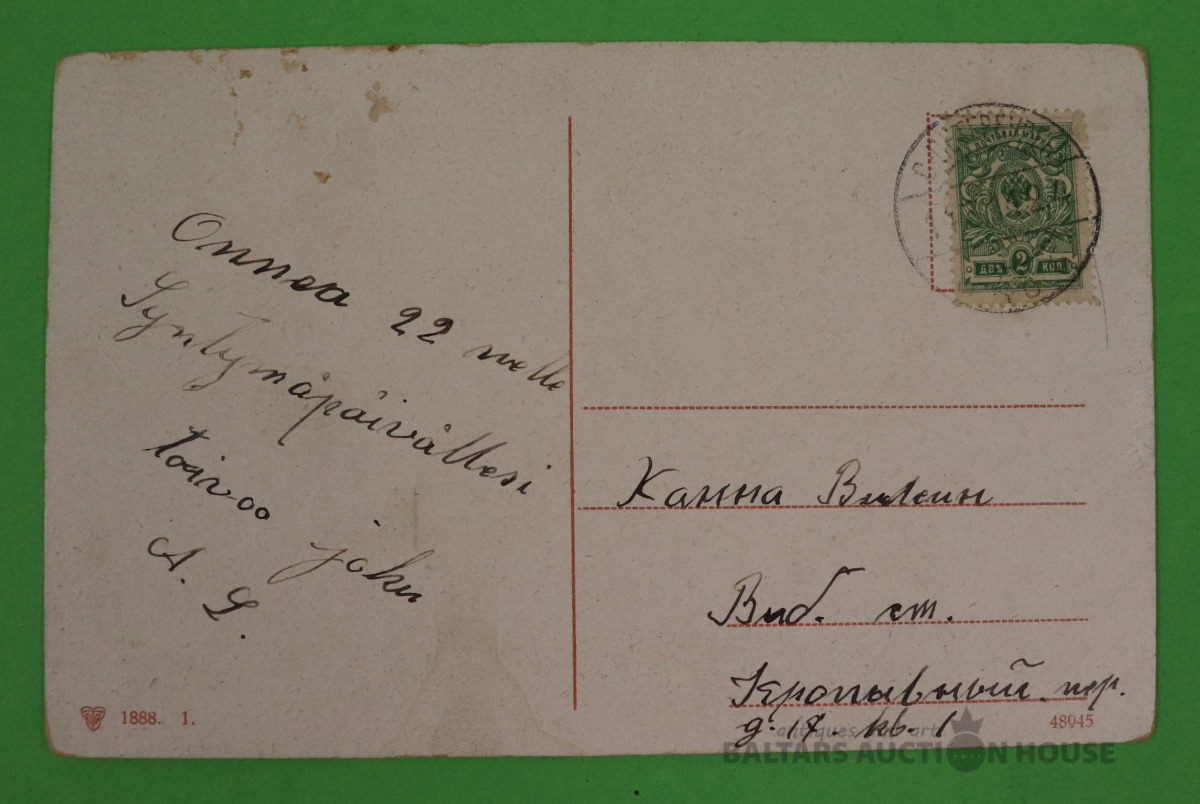 Onnea 22 nelle
Syntymäpäivällesi
toivoo joku
A. L.
1888. 1.
ПОЧТОВАЯ МАРКА
ДВѢ 2 КОП.
Ханна Вилкин
Выб. ст.
Крапивный пер.
д. 17. кв. 1
48945
antiques art
BALTARS AUCTION HOUSE